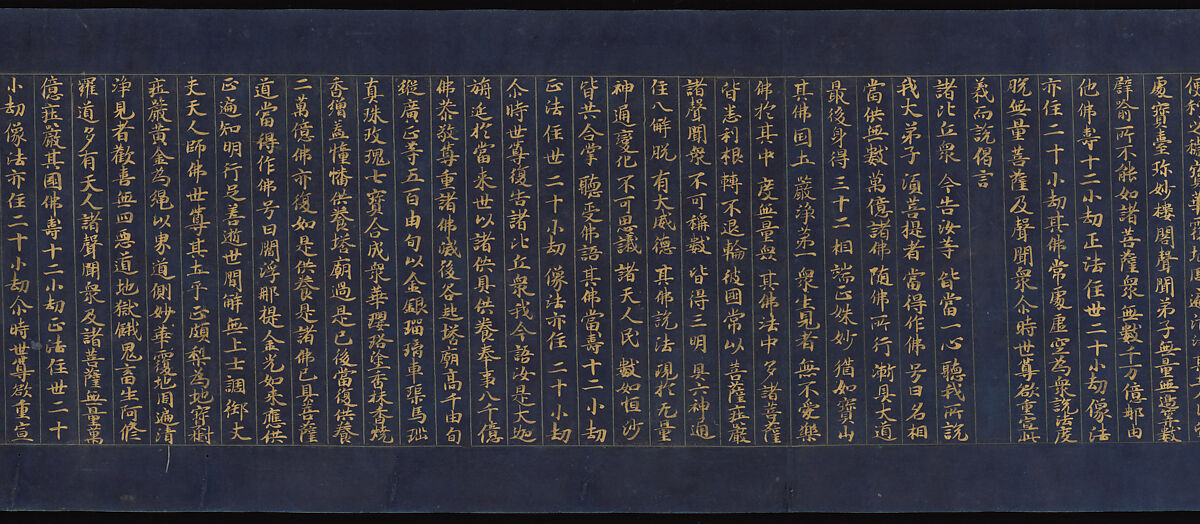 處寶臺珍妙樓閣聲聞弟子無量無邊筭數
譬喻所不能知諸菩薩眾無數千万億那由
他佛壽十二小劫正法住世二十小劫像法
亦住二十小劫其佛常處虛空為眾說法度
脫無量菩薩及聲聞眾尒時世尊欲重宣此
義而說偈言
諸比丘眾 今告汝等 皆當一心 聽我所說
我大弟子 須菩提者 當得作佛 号曰名相
當供無數 萬億諸佛 隨佛所行 漸具大道
最後身得 三十二相 端正姝妙 猶如寶山
其佛國土 嚴淨第一 眾生見者 無不愛樂
佛於其中 度無量眾 其佛法中 多諸菩薩
皆悉利根 轉不退輪 彼國常以 菩薩莊嚴
諸聲聞眾 不可稱數 皆得三明 具六神通
住八解脫 有大威德 其佛說法 現於无量
神通變化 不可思議 諸天人民 數如恒沙
皆共合掌 聽受佛語 其佛當壽 十二小劫
正法住世 二十小劫 像法亦住 二十小劫
尒時世尊復告諸比丘眾我今語汝是大迦
旃延於當來世以諸供具供養奉事八千億
佛恭敬尊重諸佛滅後各起塔廟高千由旬
縱廣正等五百由旬以金銀瑠璃車𤦲馬瑙
真珠玫瑰七寶合成眾華瓔珞塗香抹香燒
香繒蓋幢幡供養塔廟過是已後當復供養
二萬億佛亦復如是供養是諸佛已具菩薩
道當得作佛号曰閻浮那提金光如來應供
正遍知明行足善逝世間解無上士調御丈
夫天人師佛世尊其土平正頗梨為地寶樹
莊嚴黃金為繩以界道側妙華覆地周遍清
淨見者歡喜無四惡道地獄餓鬼畜生阿修
羅道多有天人諸聲聞眾及諸菩薩無量萬
億莊嚴其國佛壽十二小劫正法住世二十
小劫像法亦住二十小劫尒時世尊欲重宣